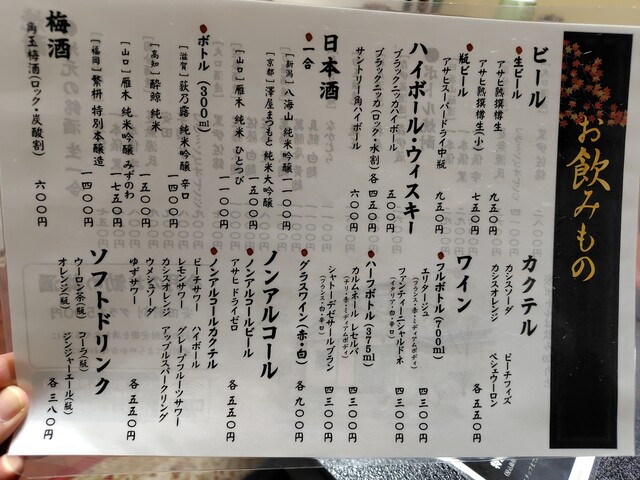 お飲みもの
ビール
・生ビール
アサヒ熟撰樽生 九五〇円
アサヒ熟撰樽生(小) 七五〇円
・瓶ビール
アサヒスーパードライ中瓶 九五〇円
ハイボール・ウィスキー
ブラックニッカハイボール 五〇〇円
ブラックニッカ(ロック・水割)各 四五〇円
サントリー角ハイボール 六〇〇円
日本酒
・一合
[新潟]八海山 純米吟醸 一一〇〇円
[京都]澤屋まつもと 純米大吟醸 一五〇〇円
[山口]雁木 純米 ひとつび 一一〇〇円
・ボトル(300ml)
[滋賀]萩乃露 純米吟醸 辛口 一四〇〇円
[高知]酔鯨 純米 一五〇〇円
[山口]雁木 純米吟醸 みずのわ 一七五〇円
[福岡]繁桝 特別本醸造 一四〇〇円
梅酒
角玉梅酒(ロック・炭酸割) 六〇〇円
カクテル
カシスソーダ ピーチフィズ
カシスオレンジ ペシェウーロン
各 五五〇円
ワイン
・フルボトル(700ml)
エリタージュ 四三〇〇円
(フランス・赤・ミディアムボディ)
ファンティーニシャルドネ 四三〇〇円
(イタリア・白・辛口)
・ハーフボトル(375ml)
カルムネール レセルバ 四三〇〇円
(チリ・赤・ミディアムボディ)
シャトーデゼサールブラン 四三〇〇円
(フランス・白・辛口)
・グラスワイン(赤・白) 各 九〇〇円
ノンアルコール
・ノンアルコールビール
アサヒドライゼロ 五五〇円
・ノンアルコールカクテル
ピーチサワー ハイボール
レモンサワー グレープフルーツサワー
カシスオレンジ アップルスパークリング
ウメソーダ
ゆずサワー 各 五五〇円
ソフトドリンク
ウーロン茶(瓶) コーラ(瓶)
オレンジ(瓶) ジンジャーエール(瓶)
各 三八〇円